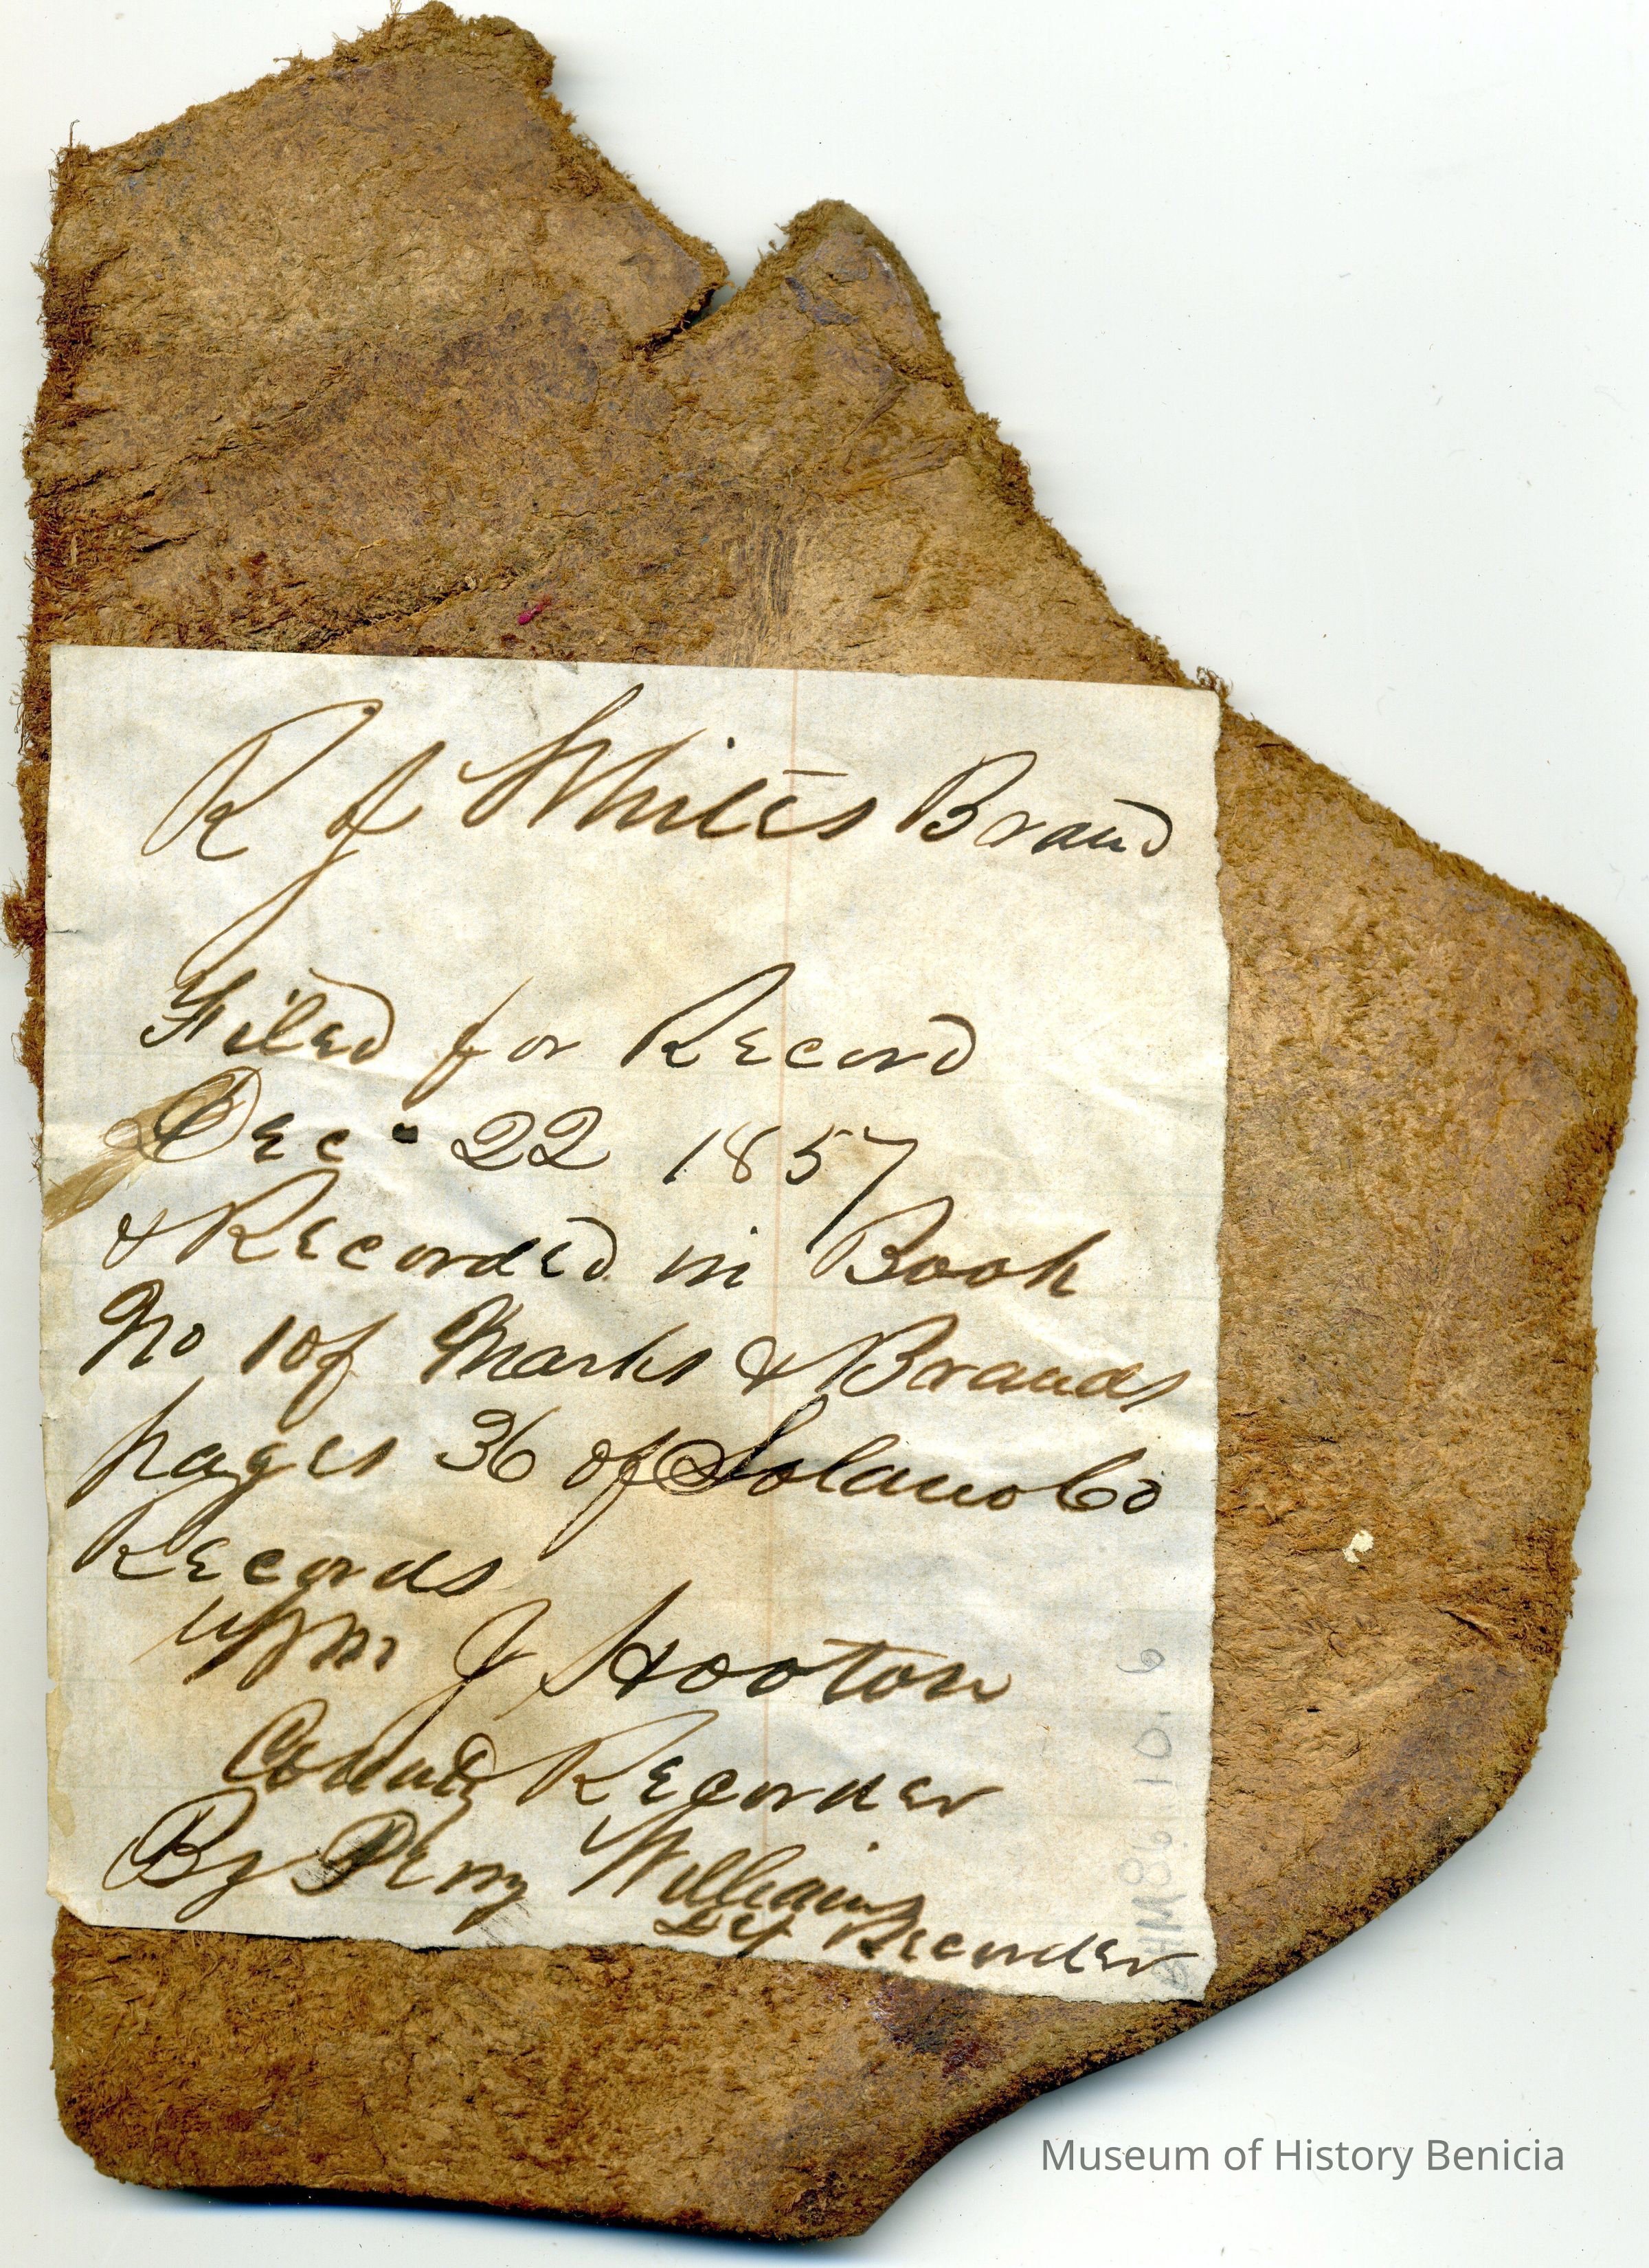 R J Whites Brand
Filed for Record
Dec. 22 1857
& Recorded in Book
No 1 of Marks & Brands
pages 36 of Solano Co
Records
Wm J Hooton
County Recorder
By Perry Williams
Dy Recorder
BHM 86.10.6
Museum of History Benicia